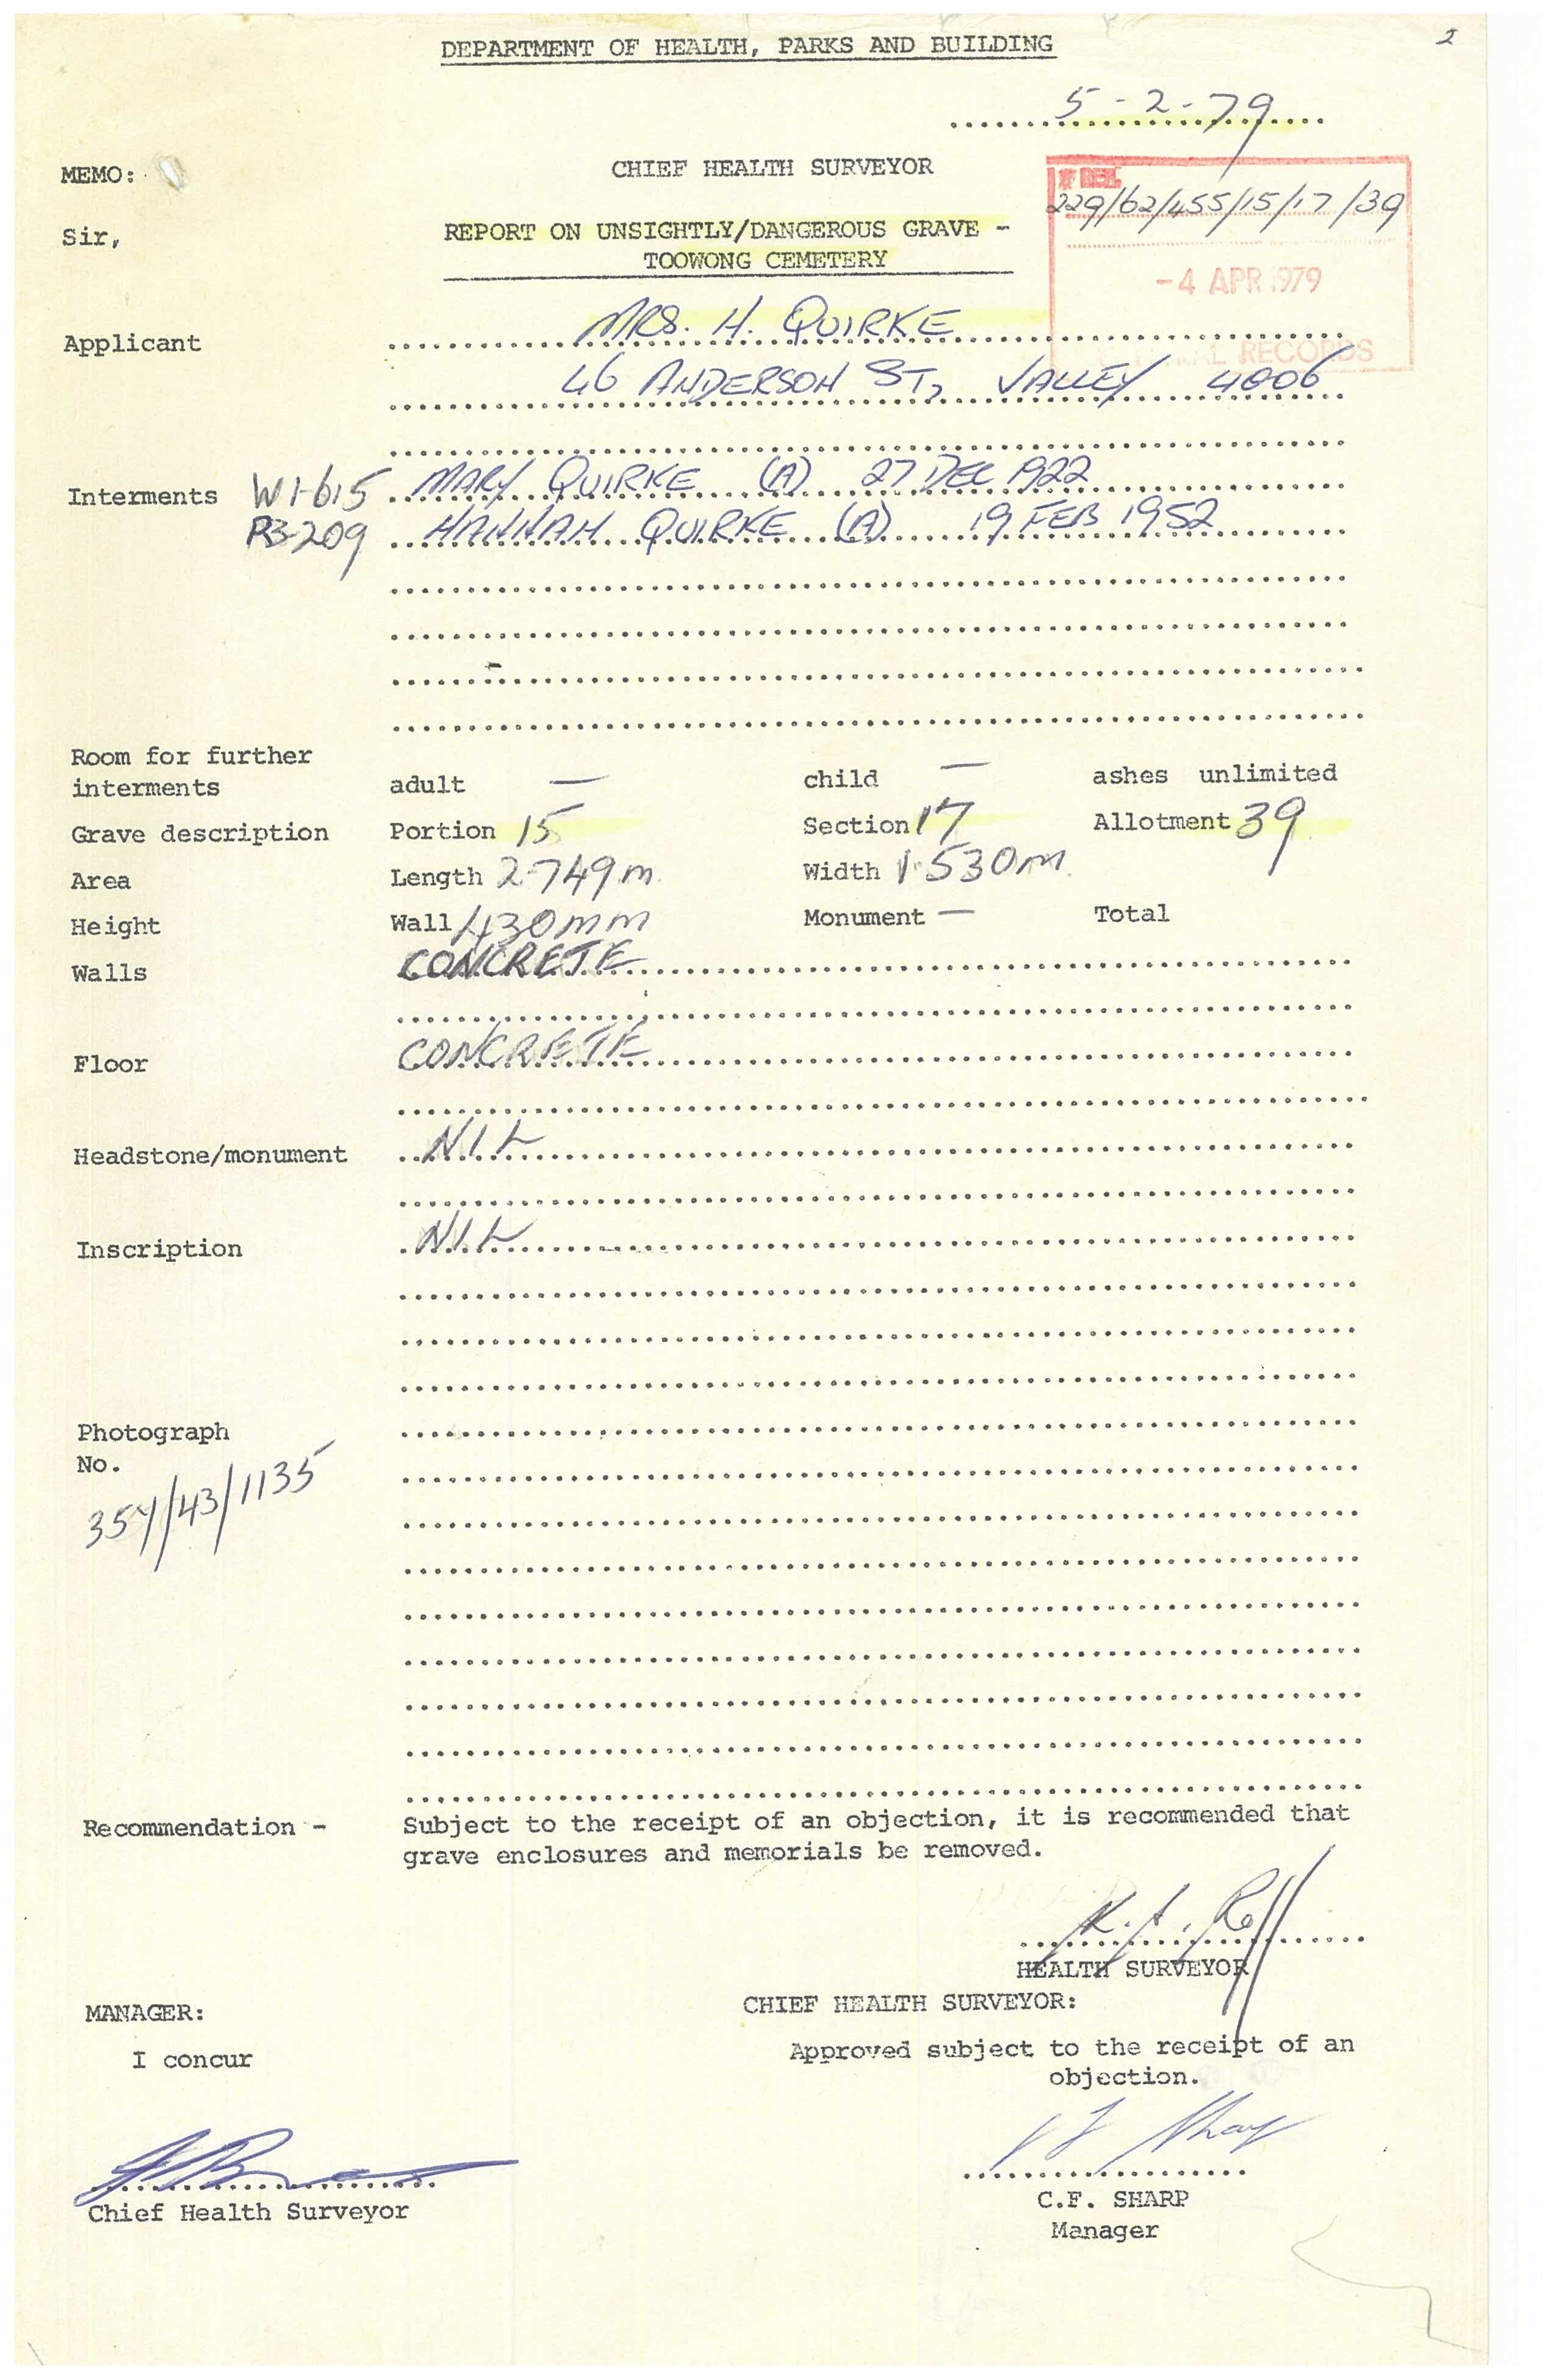 DEPARTMENT OF HEALTH, PARKS AND BUILDING
2
5-2-79
MEMO:
CHIEF HEALTH SURVEYOR
229/62/455/15/17/39
Sir,
REPORT ON UNSIGHTLY/DANGEROUS GRAVE -
TOOWONG CEMETERY
-4 APR 1979
RECORDS
Applicant MRS. H. QUIRKE
46 ANDERSON ST, VALLEY 4006
Interments W1-615 MARY QUIRKE (A) 27 DEC 1922
R3-209 HANNAH QUIRKE (A) 19 FEB 1952
Room for further
interments adult — child — ashes unlimited
Grave description Portion 15 Section 17 Allotment 39
Area Length 2.749m. Width 1.530m.
Height Wall 430mm Monument — Total
Walls CONCRETE
Floor CONCRETE
Headstone/monument NIL
Inscription NIL
Photograph
No.
354/43/1135
Recommendation - Subject to the receipt of an objection, it is recommended that
grave enclosures and memorials be removed.
HEALTH SURVEYOR
MANAGER:
CHIEF HEALTH SURVEYOR:
I concur
Approved subject to the receipt of an
objection.
Chief Health Surveyor
C.F. SHARP
Manager